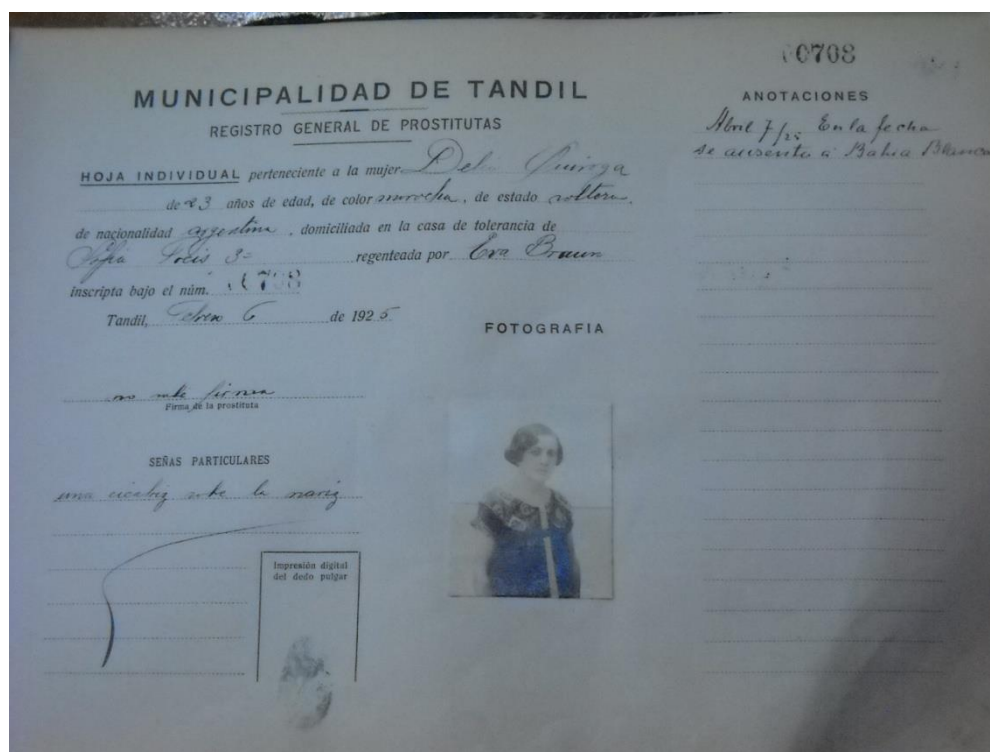 00708
MUNICIPALIDAD DE TANDIL
REGISTRO GENERAL DE PROSTITUTAS
HOJA INDIVIDUAL perteneciente a la mujer Delia Quiroga
de 23 años de edad, de color morocha, de estado soltera.
de nacionalidad argentina, domiciliada en la casa de tolerancia de
Sofia regenteada por Eva Braun
inscripta bajo el núm. 0708
Tandil, 6 de 1925
no sabe firmar
Firma de la prostituta
SEÑAS PARTICULARES
una cicatriz sobre la nariz
Impresión digital
del dedo pulgar
FOTOGRAFIA
ANOTACIONES
Abril 7/25 En la fecha
se ausenta á Bahia Blanca